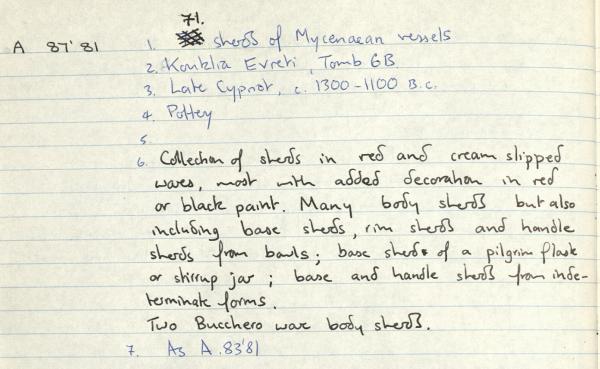 71.
A 87'81 1. sherds of Mycenaean vessels
2. Kouklia Evreti, Tomb GB
3. Late Cypriot, c. 1300-1100 B.C.
4. Pottery
5
6. Collection of sherds in red and cream slipped
wares, most with added decoration in red
or black paint. Many body sherds but also
including base sherds, rim sherds and handle
sherds from bowls; base sherds of a pilgrim flask
or stirrup jar; base and handle sherds from inde-
terminate forms.
Two Bucchero ware body sherds.
7. As A.83'81